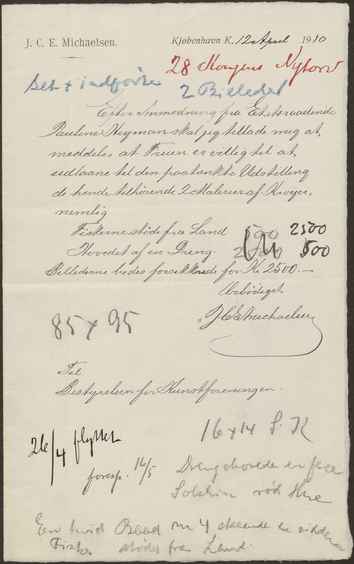 J. C. E. Michaelsen.
Kjøbenhavn K. 12 April 1910
28 Kongens Nytorv
Set + indført
2 Billeder
Efter Anmodning fra Etatsraadinde
Pauline Heyman skal jeg tillade mig at
meddele, at Fruen er villig til at
udlaane til den paatænkte Udstilling
de hende tilhørende 2 Malerier af Krøyer,
nemlig
Fiskerne støde fra Land 500 2500
Hovedet af en Dreng 2000 500
Billederne bedes forsikkrede for Kr 2500.—
Ærbødigst
J C E Michaelsen
85 x 95
Til
Bestyrelsen for Kunstforeningen.
16 x 14 S. K
26/4 flyttet
foresp. 16/5
Drengehovede en face
rød Hue
En hvid Baad m 4
Fisker støder fra Land.